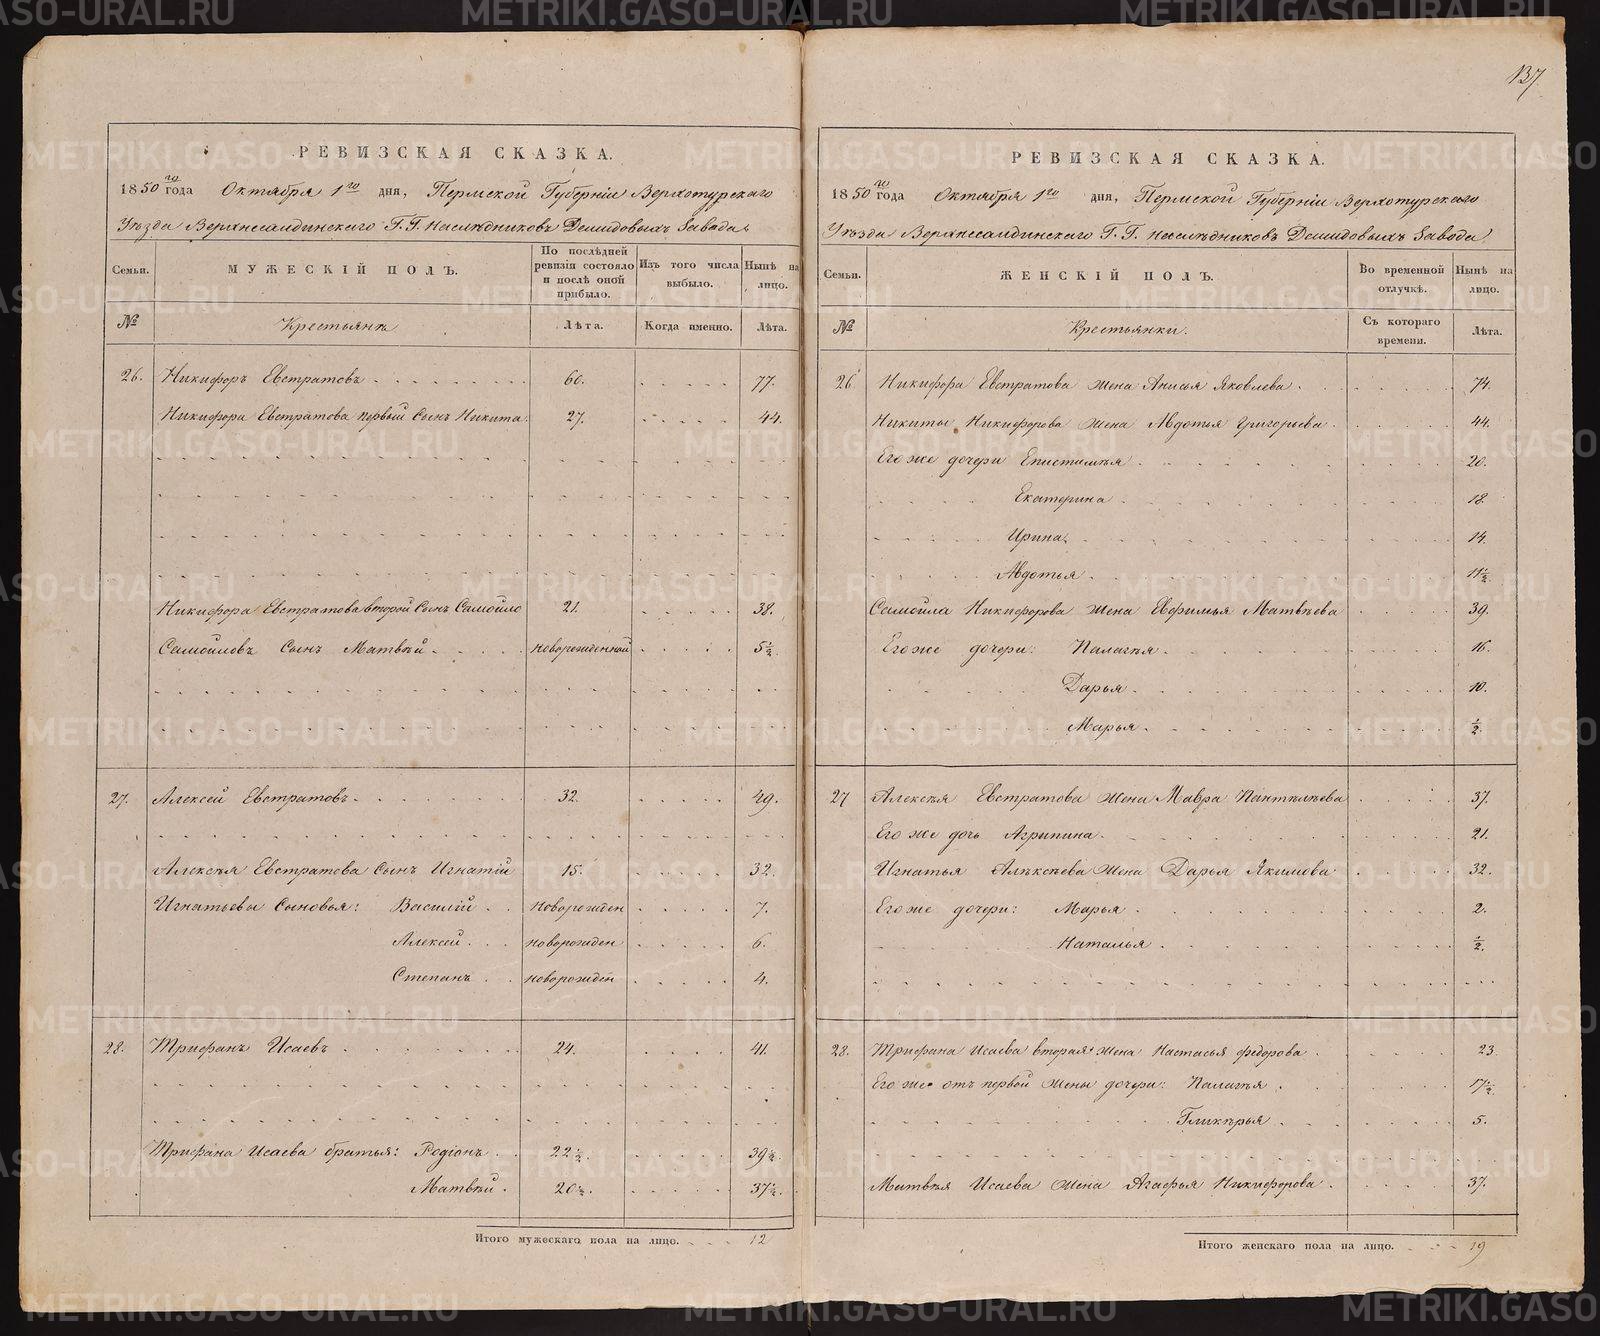 137
РЕВИЗСКАЯ СКАЗКА.
1850го года Октября 1го дня, Пермской Губерніи Верхотурскаго
Уѣзда Верхнесалдинскаго Г.Г. Наслѣдниковъ Демидовыхъ Завода
Семьи.
МУЖЕСКІЙ ПОЛЪ.
По послѣдней ревизіи состояло и послѣ оной прибыло.
Изъ того числа выбыло.
Нынѣ на лицо.
№
Крестьянъ
Лѣта.
Когда именно.
Лѣта.
26. Никифоръ Евстратовъ 60. 77.
Никифора Евстратова первый Сынъ Никита 27. 44.
Никифора Евстратова второй Сынъ Самойло 21. 38.
Самоиловъ Сынъ Матвѣй новорожденной 5½.
27. Алексей Евстратовъ 32. 49.
Алексѣя Евстратова Сынъ Игнатій 15. 32.
Игнатьевы Сыновья: Василій новорожден 7.
Алексей новорожден 6.
Степанъ новорожден 4.
28. Трифанъ Исаевъ 24. 41.
Трифана Исаева братья: Родіонъ 22½. 39½.
Матвѣй 20½. 37½.
Итого мужескаго пола на лицо. 12
РЕВИЗСКАЯ СКАЗКА.
1850го года Октября 1го дня, Пермской Губерніи Верхотурскаго
Уѣзда Верхнесалдинскаго Г.Г. Наслѣдниковъ Демидовыхъ Завода.
Семьи.
ЖЕНСКІЙ ПОЛЪ.
Во временной отлучкѣ.
Нынѣ на лицо.
№
Крестьянки.
Съ котораго времени.
Лѣта.
26 Никифора Евстратова жена Анисья Яковлева. 74.
Никиты Никифорова жена Авдотья Григорьева 44.
Его же дочери Епистимѣя 20.
Екатерина 18.
Ирина. 14.
Авдотья 11½
Самоила Никифорова жена Евфимья Матвѣева 39.
Его же дочери: Палагѣя 16.
Дарья 10.
Марья ½.
27 Алексѣя Евстратова жена Мавра Пантѣлѣева 37.
Его же дочь Агрипина 21.
Игнатья Алѣксѣева жена Дарья Якимова 32.
Его же дочери: Марья 2.
Наталья ½.
28. Трифана Исаева вторая жена Настасья Федорова 23.
Его же отъ первой жены дочери: Палагѣя 17½
Гликѣрья 5.
Матвѣя Исаева жена Агафья Никифорова 37.
Итого женскаго пола на лицо. 19
METRIKI.GASO-URAL.RU